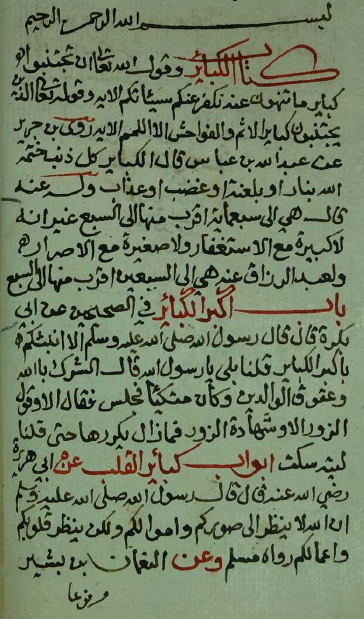 بسم الله الرحمن الرحيم
كتاب الكبائر وقول الله تعالى ان تجتنبوا
كباير ما تنهون عنه نكفر عنكم سيئاتكم الايه وقوله تعالى الذين
يجتنبون كباير الاثم والفواحش الا اللمم الايه روى بن جرير
عن عبد الله بن عباس قال الكباير كل ذنب ختمه
الله بنار او بلعنة او غضب او عذاب وله عنه
قال هي الى سبعماية اقرب منها الى السبع غير انه
لا كبيرة مع الاستغفار ولا صغيرة مع الاصرار
ولعبد الرزاق عنه هي الى السبعين اقرب منها الى السبع
باب اكبر الكبائر في الصحيحين عن ابي
بكرة قال قال رسول الله صلى الله عليه وسلم الا انبئكم
باكبر الكباير قلنا بلى يا رسول الله قال الشرك بالله
وعقوق الوالدين وكان متكيا فجلس فقال الا وقول
الزور الا وشهادة الزور فما زال يكررها حتى قلنا
ليته سكت ابواب كبائر القلب عن ابي هريرة
رضي الله عنه قال قال رسول الله صلى الله عليه وسلم
ان الله لا ينظر الى صوركم واموالكم ولكن ينظر قلوبكم
واعمالكم رواه مسلم وعن النعمان بن بشير
مرفوعا